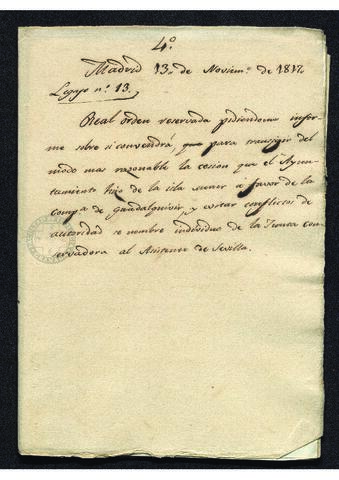 4.º
Madrid 13. de Noviem.e de 1817.
Legajo n.º 13.
Real orden reservada pidiendome infor-
me sobre si convendrá que para transigir del
modo mas razonable la cesion que el Ayun-
tamiento hizo de la isla menor á favor de la
Compa de Guadalquivir, y evitar conflictos de
autoridad se nombre individuo de la Junta con-
servadora al Asistente de Sevilla.